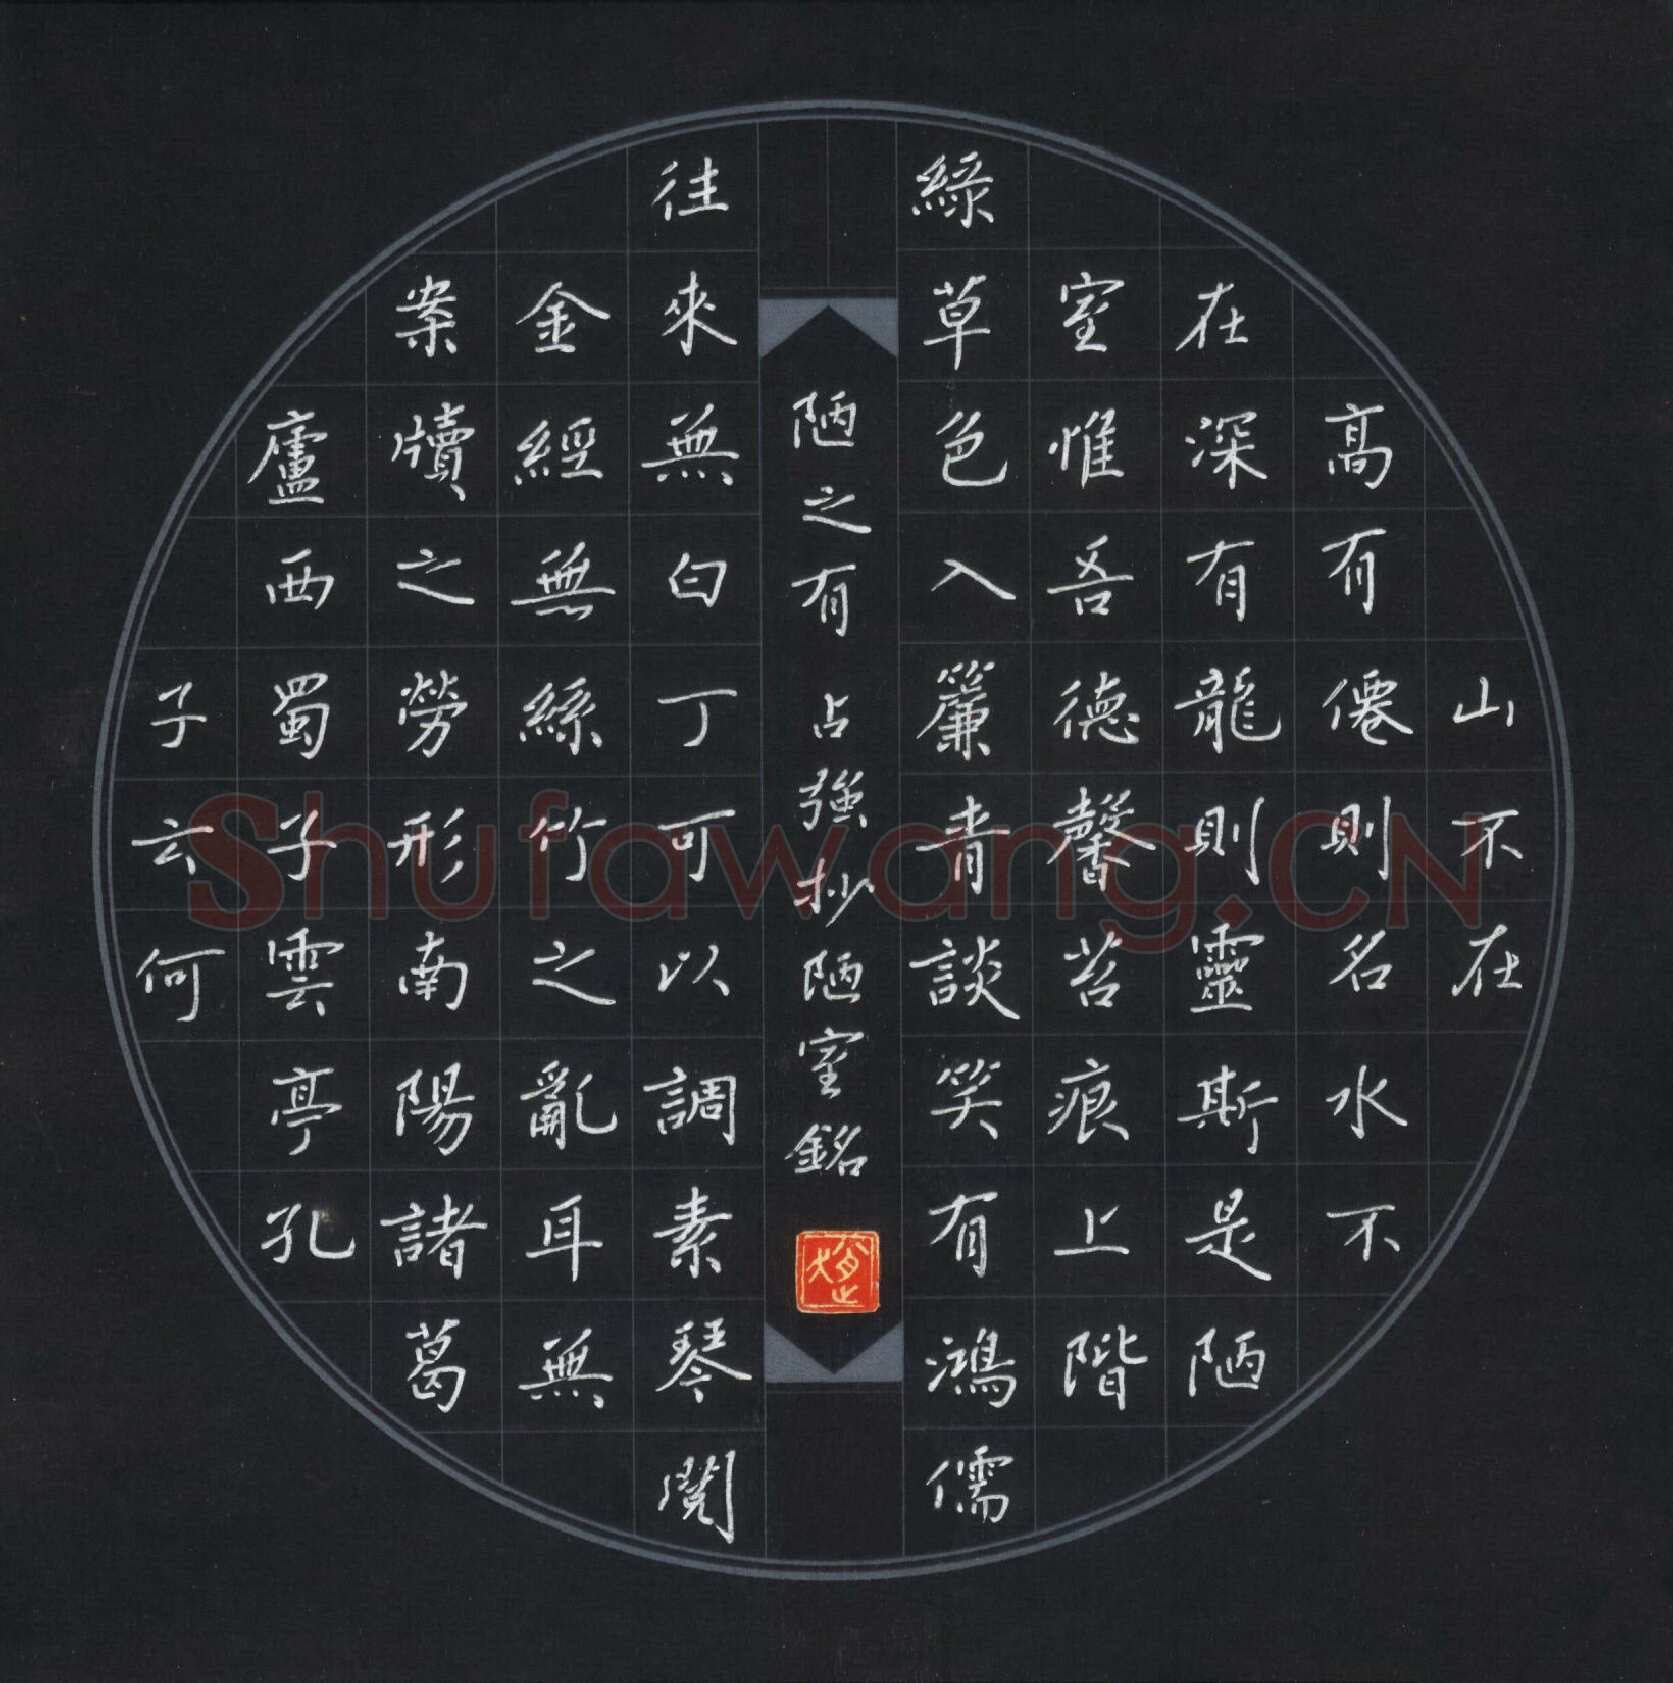 山不在
高有僊則名水不
在深有龍則靈斯是陋
室惟吾德馨苔痕上階
綠草色入簾青談笑有鴻儒
往來無白丁可以調素琴閱
金經無絲竹之亂耳無
案牘之勞形南陽諸葛
廬西蜀子雲亭孔
子云何
陋之有 占強抄陋室銘
Shufawang.CN